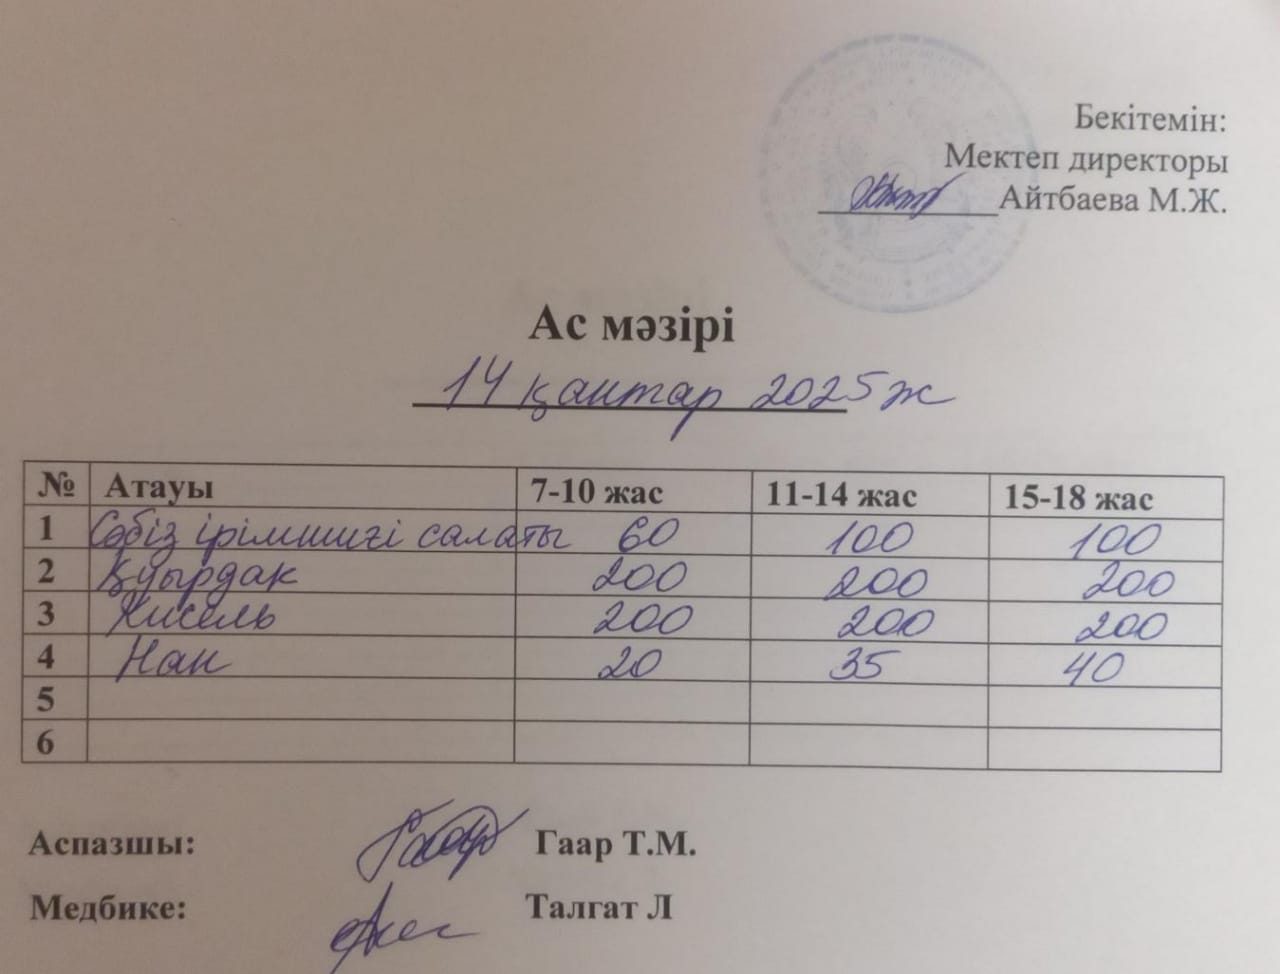 Бекітемін:
Мектеп директоры
Айтбаева М.Ж.
Ас мәзірі
14 қантар 2025 ж
№ Атауы 7-10 жас 11-14 жас 15-18 жас
1 Сәбіз ірімшигі салаты 60 100 100
2 Қуырдак 200 200 200
3 Кисель 200 200 200
4 Нан 20 35 40
5
6
Аспазшы: Гаар Т.М.
Медбике: Талгат Л